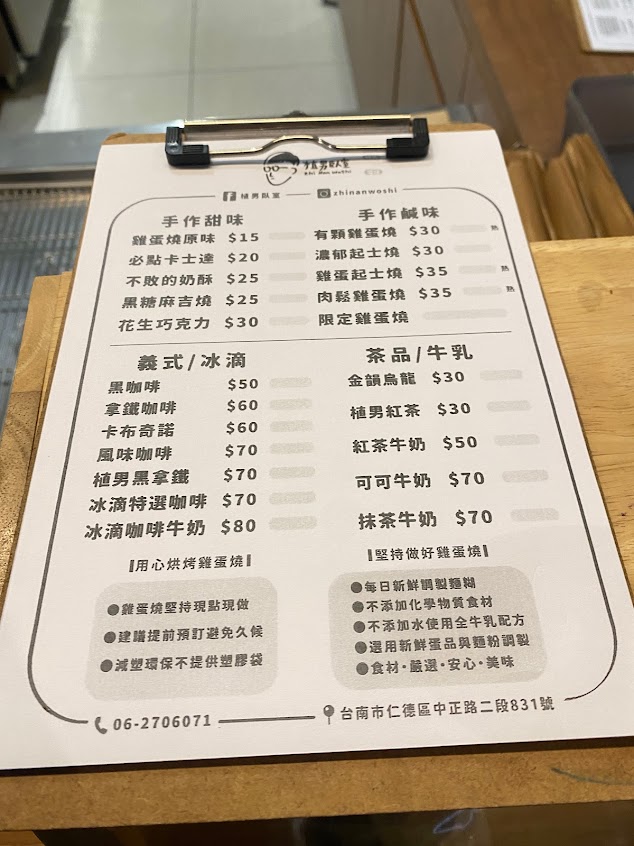 植男臥室
Zhi Nan woshi
植男臥室
zhinanwoshi
手作甜味
雞蛋燒原味 $15
必點卡士達 $20
不敗的奶酥 $25
黑糖麻吉燒 $25
花生巧克力 $30
手作鹹味
有顆雞蛋燒 $30 熱
濃郁起士燒 $30
雞蛋起士燒 $35 熱
肉鬆雞蛋燒 $35 熱
限定雞蛋燒
義式/冰滴
黑咖啡 $50
拿鐵咖啡 $60
卡布奇諾 $60
風味咖啡 $70
植男黑拿鐵 $70
冰滴特選咖啡 $70
冰滴咖啡牛奶 $80
茶品/牛乳
金韻烏龍 $30
植男紅茶 $30
紅茶牛奶 $50
可可牛奶 $70
抹茶牛奶 $70
用心烘烤雞蛋燒
●雞蛋燒堅持現點現做
●建議提前預訂避免久候
●減塑環保不提供塑膠袋
堅持做好雞蛋燒
●每日新鮮調製麵糊
●不添加化學物質食材
●不添加水使用全牛乳配方
●選用新鮮蛋品與麵粉調製
●食材·嚴選·安心·美味
06-2706071
台南市仁德區中正路二段831號